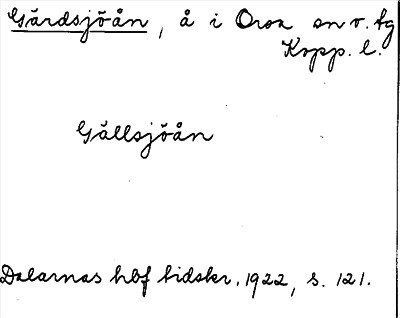 Gärdsjöån, å i Orsa sn o. fg
Kopp. l.
Gällsjöån
Dalarnas hbf tidskr. 1922, s. 121.